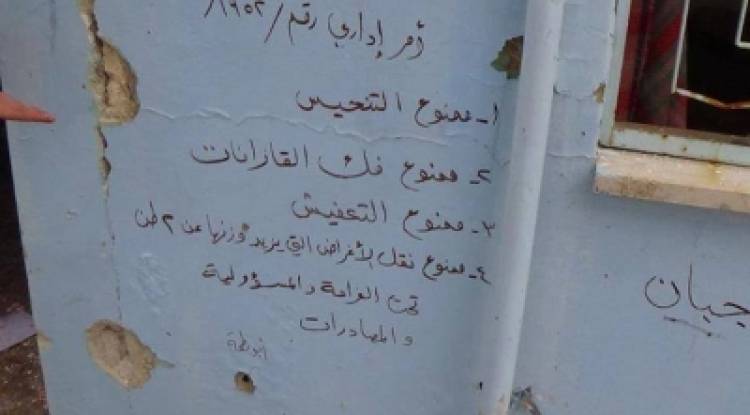 أمر إداري رقم /١٩٥٢/
١- ممنوع التنحيس
٢- ممنوع فك القازانات
٣- ممنوع التعفيش
٤- ممنوع نقل الأغراض التي يزيد وزنها عن ٢ طن
تحت الغرامة والمسؤولية
والمصادرات
جبان